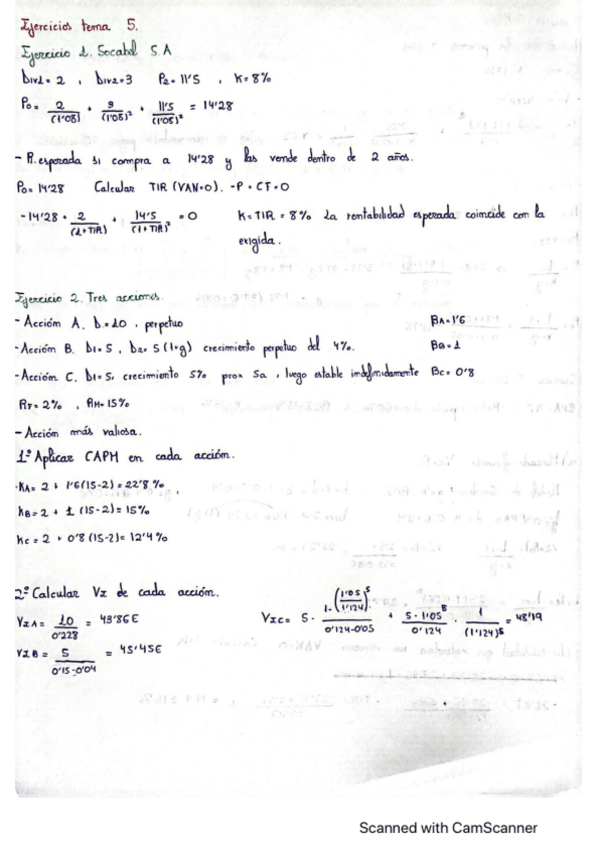 Ejercicios tema 5.
Ejercicio 1. Socatel S.A
Div1 = 2 , Div2 = 3 P2 = 11'5 , K = 8%
P0 = 2/(1'08) + 3/(1'08)² + 11'5/(1'08)² = 14'28
- R. esperada si compra a 14'28 y las vende dentro de 2 años.
P0 = 14'28 Calcular TIR (VAN=0). -P + CF = 0
-14'28 + 2/(1+TIR) + 14'5/(1+TIR)² = 0 K = TIR = 8% La rentabilidad esperada coincide con la
exigida.
Ejercicio 2. Tres acciones.
- Acción A. b = 10 , perpetuo BA = 1'6
- Acción B. b1 = 5 , b2 = 5 (1+g) crecimiento perpetuo del 4%. BB = 1
- Acción C. b1 = 5, crecimiento 5% prox 5a , luego estable indefinidamente BC = 0'8
RF = 2% , RM = 15%
- Acción más valiosa.
1º Aplicar CAPM en cada acción.
KA = 2 + 1'6 (15-2) = 22'8 %
KB = 2 + 1 (15-2) = 15%
KC = 2 + 0'8 (15-2) = 12'4 %
2º Calcular V2 de cada acción.
V2A = 10/0'228 = 43'86€ V2C = 5 · (1-(1'05/1'124)^5)/(0'124-0'05) + (5·1'05^5)/0'124 · 1/(1'124)^5 = 48'19
V2B = 5/(0'15-0'04) = 45'45€
Scanned with CamScanner